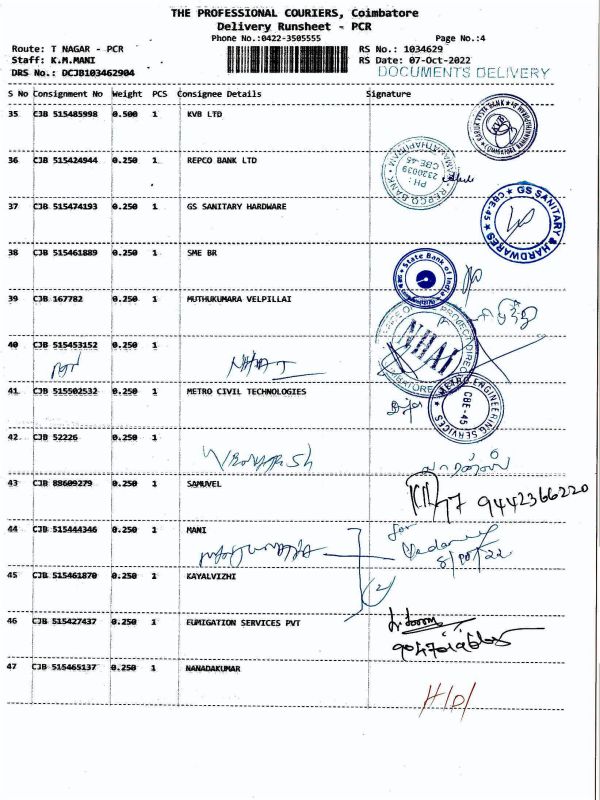 THE PROFESSIONAL COURIERS, Coimbatore
Delivery Runsheet - PCR
Phone No.:0422-3505555
Page No.:4
Route: T NAGAR - PCR
RS No.: 1034629
Staff: K.M.MANI
RS Date: 07-Oct-2022
DRS No.: DCJB103462904
DOCUMENTS DELIVERY
S No Consignment No Weight PCS Consignee Details Signature
35 CJB 515485998 0.500 1 KVB LTD
36 CJB 515424944 0.250 1 REPCO BANK LTD
PH : 2320039
CBE-45
REPCO BANK
37 CJB 515474193 0.250 1 GS SANITARY HARDWARE
GS SANITARY & HARDWARES
CBE-45
38 CJB 515461889 0.250 1 SME BR
State Bank of India
39 CJB 167782 0.250 1 MUTHUKUMARA VELPILLAI
NHAI
40 CJB 515453152 0.250 1
41 CJB 515502532 0.250 1 METRO CIVIL TECHNOLOGIES
METRO ENGINEERING SERVICES
CBE-45
42 CJB 52226 0.250 1
43 CJB 88609279 0.250 1 SAMUVEL
9442366220
44 CJB 515444346 0.250 1 MANI
for
8/10/22
45 CJB 515461870 0.250 1 KAYALVIZHI
(2)
46 CJB 515427437 0.250 1 FUMIGATION SERVICES PVT
47 CJB 515465137 0.250 1 NANADAKUMAR